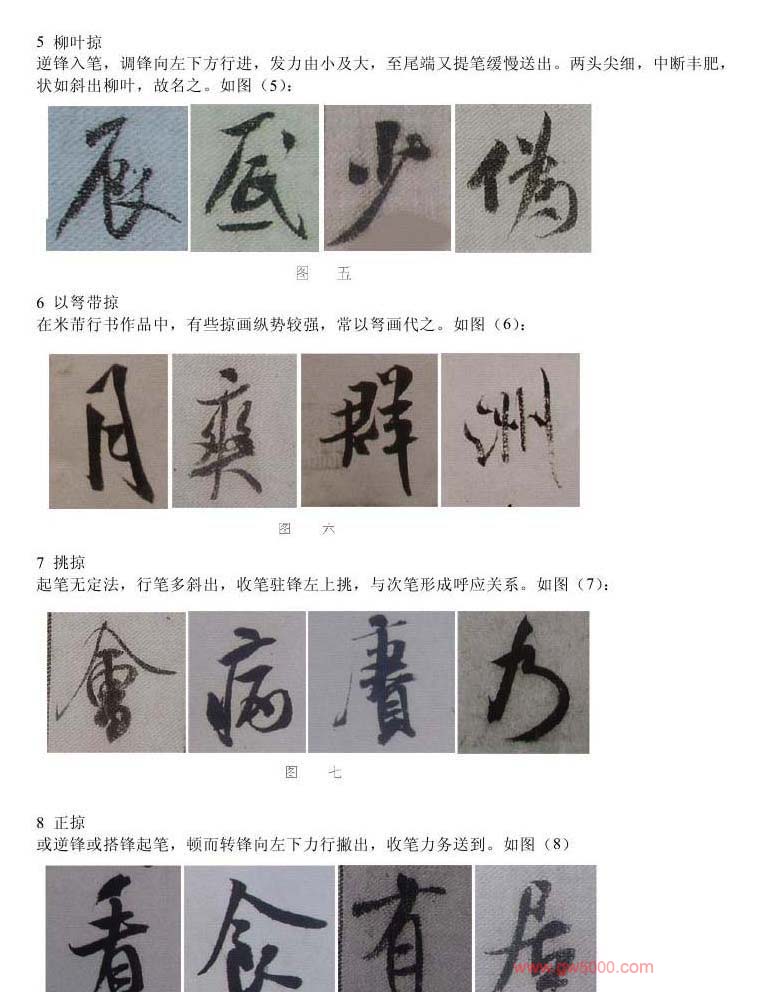 5 柳叶掠
逆锋入笔，调锋向左下方行进，发力由小及大，至尾端又提笔缓慢送出。两头尖细，中断丰肥，
状如斜出柳叶，故名之。如图（5）：
辰 底 少 偽
图 五
6 以弩带掠
在米芾行书作品中，有些掠画纵势较强，常以弩画代之。如图（6）：
月 爽 群 洲
图 六
7 挑掠
起笔无定法，行笔多斜出，收笔驻锋左上挑，与次笔形成呼应关系。如图（7）：
會 病 賡 乃
图 七
8 正掠
或逆锋或搭锋起笔，顿而转锋向左下力行撇出，收笔力务送到。如图（8）
看 食 有 居
www.gw5000.com